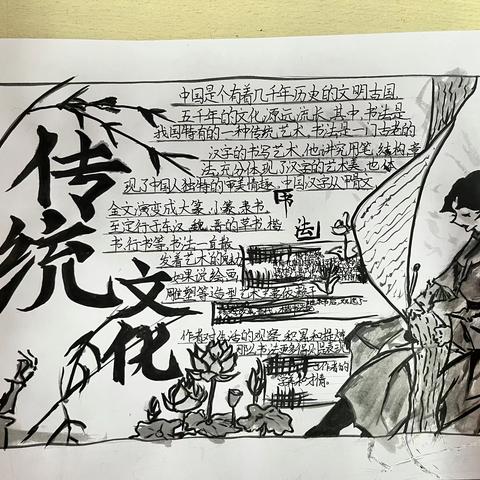 传统
文化
中国是个有着几千年历史的文明古国.
五千年的文化,源元流长.其中,书法是
我国特有的一种传统艺术.书法是一门古老的
汉字的书写艺术,他讲究用笔,结构,章
法,充分体现了汉字的艺术美,也体
现了中国人独特的审美情趣.中国汉字从甲骨文
金文演变成大篆,小篆,隶书,
至定行于东汉,魏,晋的草书,楷
书,行书等,书法一直散
发着艺术的魅力
如果说绘画,
雕塑等造型艺术
书
法
作者对生活的观察,积累和提炼
那么书法
作者的